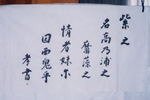 紫之
名高乃浦之
靡藻之
情者妹尓
因西鬼乎
孝書